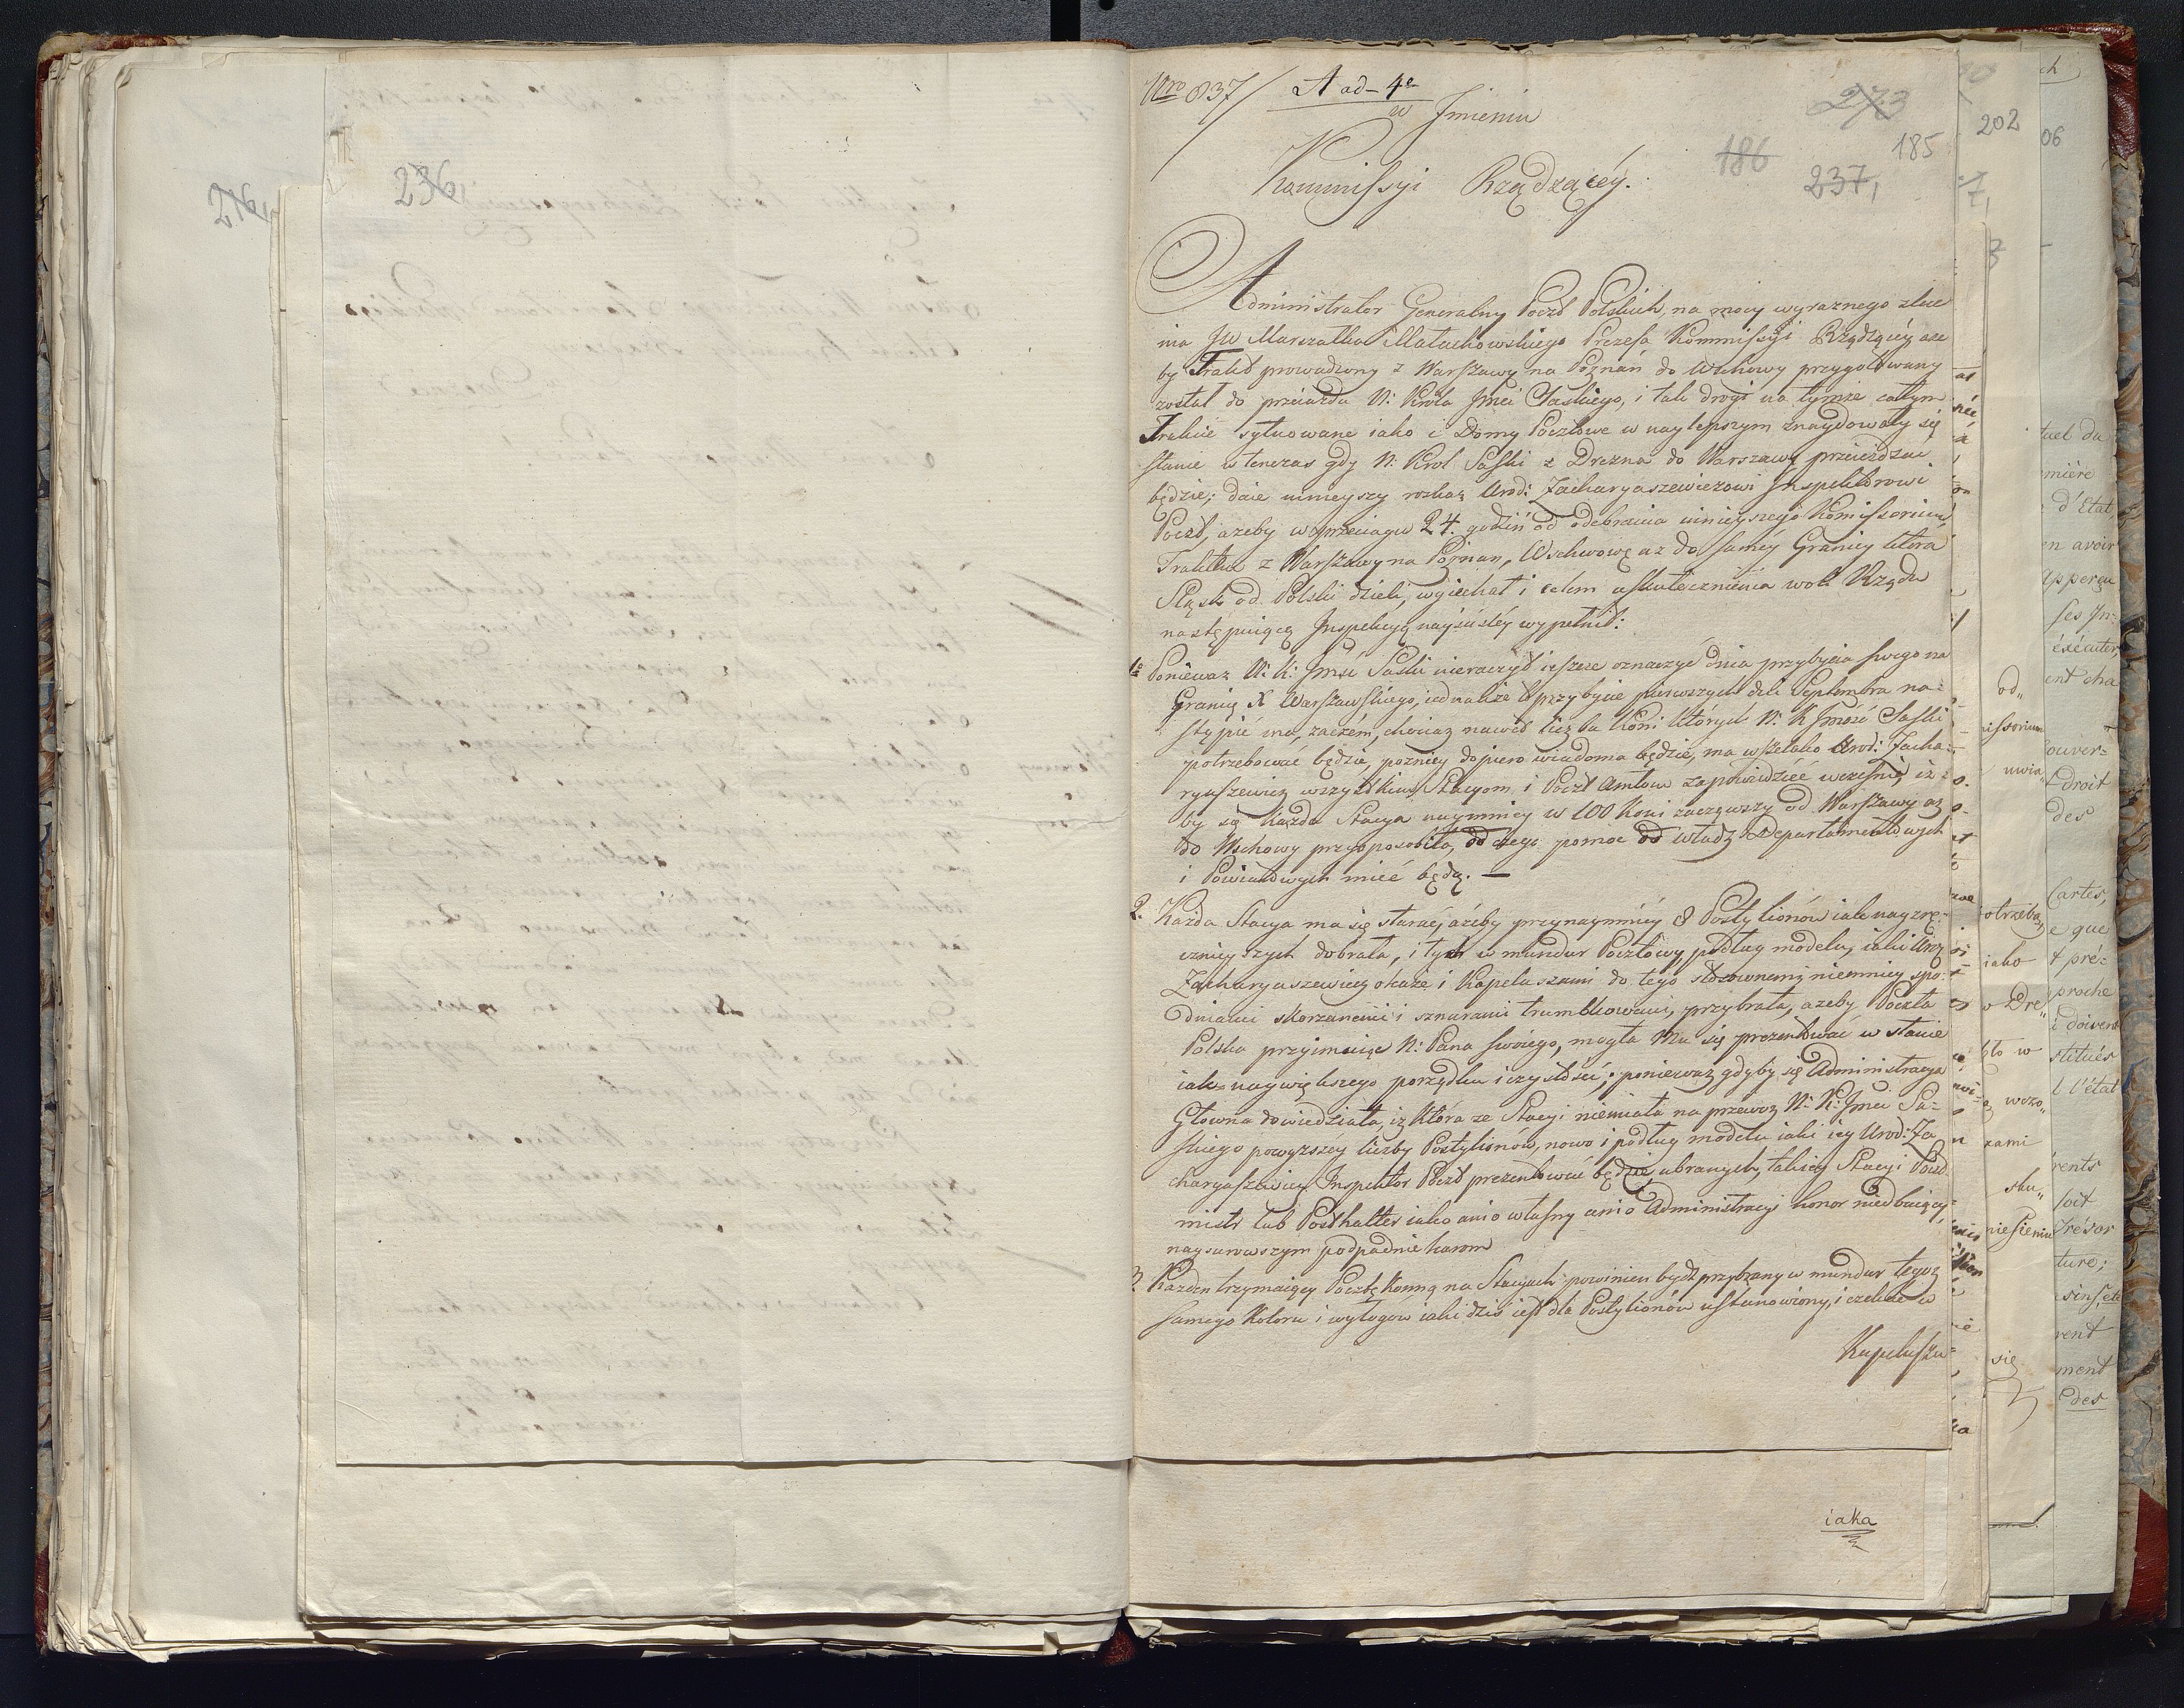 216,
236,
Nro 837/ A ad 4a
w Jmieniu
273
202
06
186
185
237,
Kommissyi Rządzącéy.
Administrator Generalny Poczt Polskich, na mocy wyraznego zlece
nia JW Marszałka Małachowskiego Prezesa Kommissyi Rządzącéy aże
by Trakt prowadzony z Warszawy na Poznań do Wschowy przygotowany
został do przeiazdu N: Króla Jmci Saskiego, i tak drogi na tymże całym
Trakcie sytuowane iako i Domy Pocztowe w naylepszym znaydowały się
stanie wtenczas gdy N: Krol Saski z Drezna do Warszawy przeieżdzać
będzie; daie ninieyszy rozkaz Urod: Zacharyaszewiczowi Jnspektorowi
Poczt, azeby w przeciągu 24. godzin od odebrania ninieyszego Komissorium,
Traktem z Warszawy na Poznan, Wschowę az do samey Granicy która
Sląsk od Polski dzieli, wyiechał i celem uskutecznienia woli Rządu
następuiącą Jnspekcyą nayściśléy wypełnił:
1o Poniewaz N: K: Jmsć Saski nieraczył ieszcze oznaczyć dnia przybycia swego na
Granicę X Warszawskiego, iednakże to przybycie pierwszych dni Septembra na=
stąpić ma, zaczém, chociaz nawet liczba Koni których N: K Jmość Saski
potrzebować będzie, pozniey dopiero wiadoma będzie, ma wszelako Urod: Zacha=
ryaszewicz wszystkim Stacyom i Poczt Amtom zapowiedzieć wcześnie, iż=
by się każda Stacya naymniey w 100 Koni zacząwszy od Warszawy aż
do Wschowy przysposobiła, do czego pomoc od władz Departamentowych
i Powiatowych mieć będą. —
2. Każda Stacya ma się starać, ażeby przynaymniéy 8 Postylionów iak nayzrę=
cznieyszych dobrała, i tych w mundur Pocztowy, podług modelu, iaki Urod
Zacharyaszewicz okaże i Kapeluszami do tego stosownemi niemniey spo=
dniami skorzanemi i sznurami trumbkowemi, przybrała, azeby Poczta
Polska przyimuiąc N: Pana swoiego, mogła Mu się prezentować w stanie
iak=naywiększego porządku i czystości; poniewaz gdyby się Administracya
Głowna dowiedziała, iz która ze Stacyi niemiała na przewoz N: K: Jmci Sa=
skiego powyzszéy liczby Postylionów, nowo i podług modelu iaki iey Urod: Za
charyaszewicz Jnspektor Poczt prezentować będzie, ubranych, takiey Stacyi Poczt
mistr lub Posthalter iako ani o własny ani o Administracyi honor niedbaiący
naysurowszym podpadnie karom
3. Kazden trzymaiący Pocztę Konną na Stacyach powinien bydź przybrany w mundur tegoz
samego Koloru i wyłogow iaki dziś iest dla Postylionów ustanowiony, i czekać w
Kapeluszu
iaka
tuel du
mière
d'Etat
en avoir
apperçu
ses In=
éxécuter,
ent cha
ouver=
droit
des
Cartes,
e que
t pré=
proche
i doivent
stitués
l l'état
rents
soit
Trésor
ture;
rent
ment
des
od„
issorium
uwia„
otrzeba,
iako
w Dre„
to w
wczo„
kami
sku„
niesieniu
się